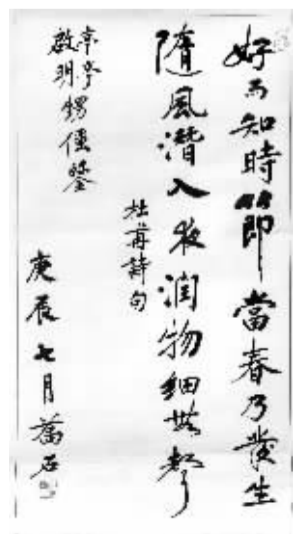 好雨知時節當春乃發生
隨風潛入夜潤物細無聲
杜甫詩句
啟明甥僅鋻
庚辰七月萬石